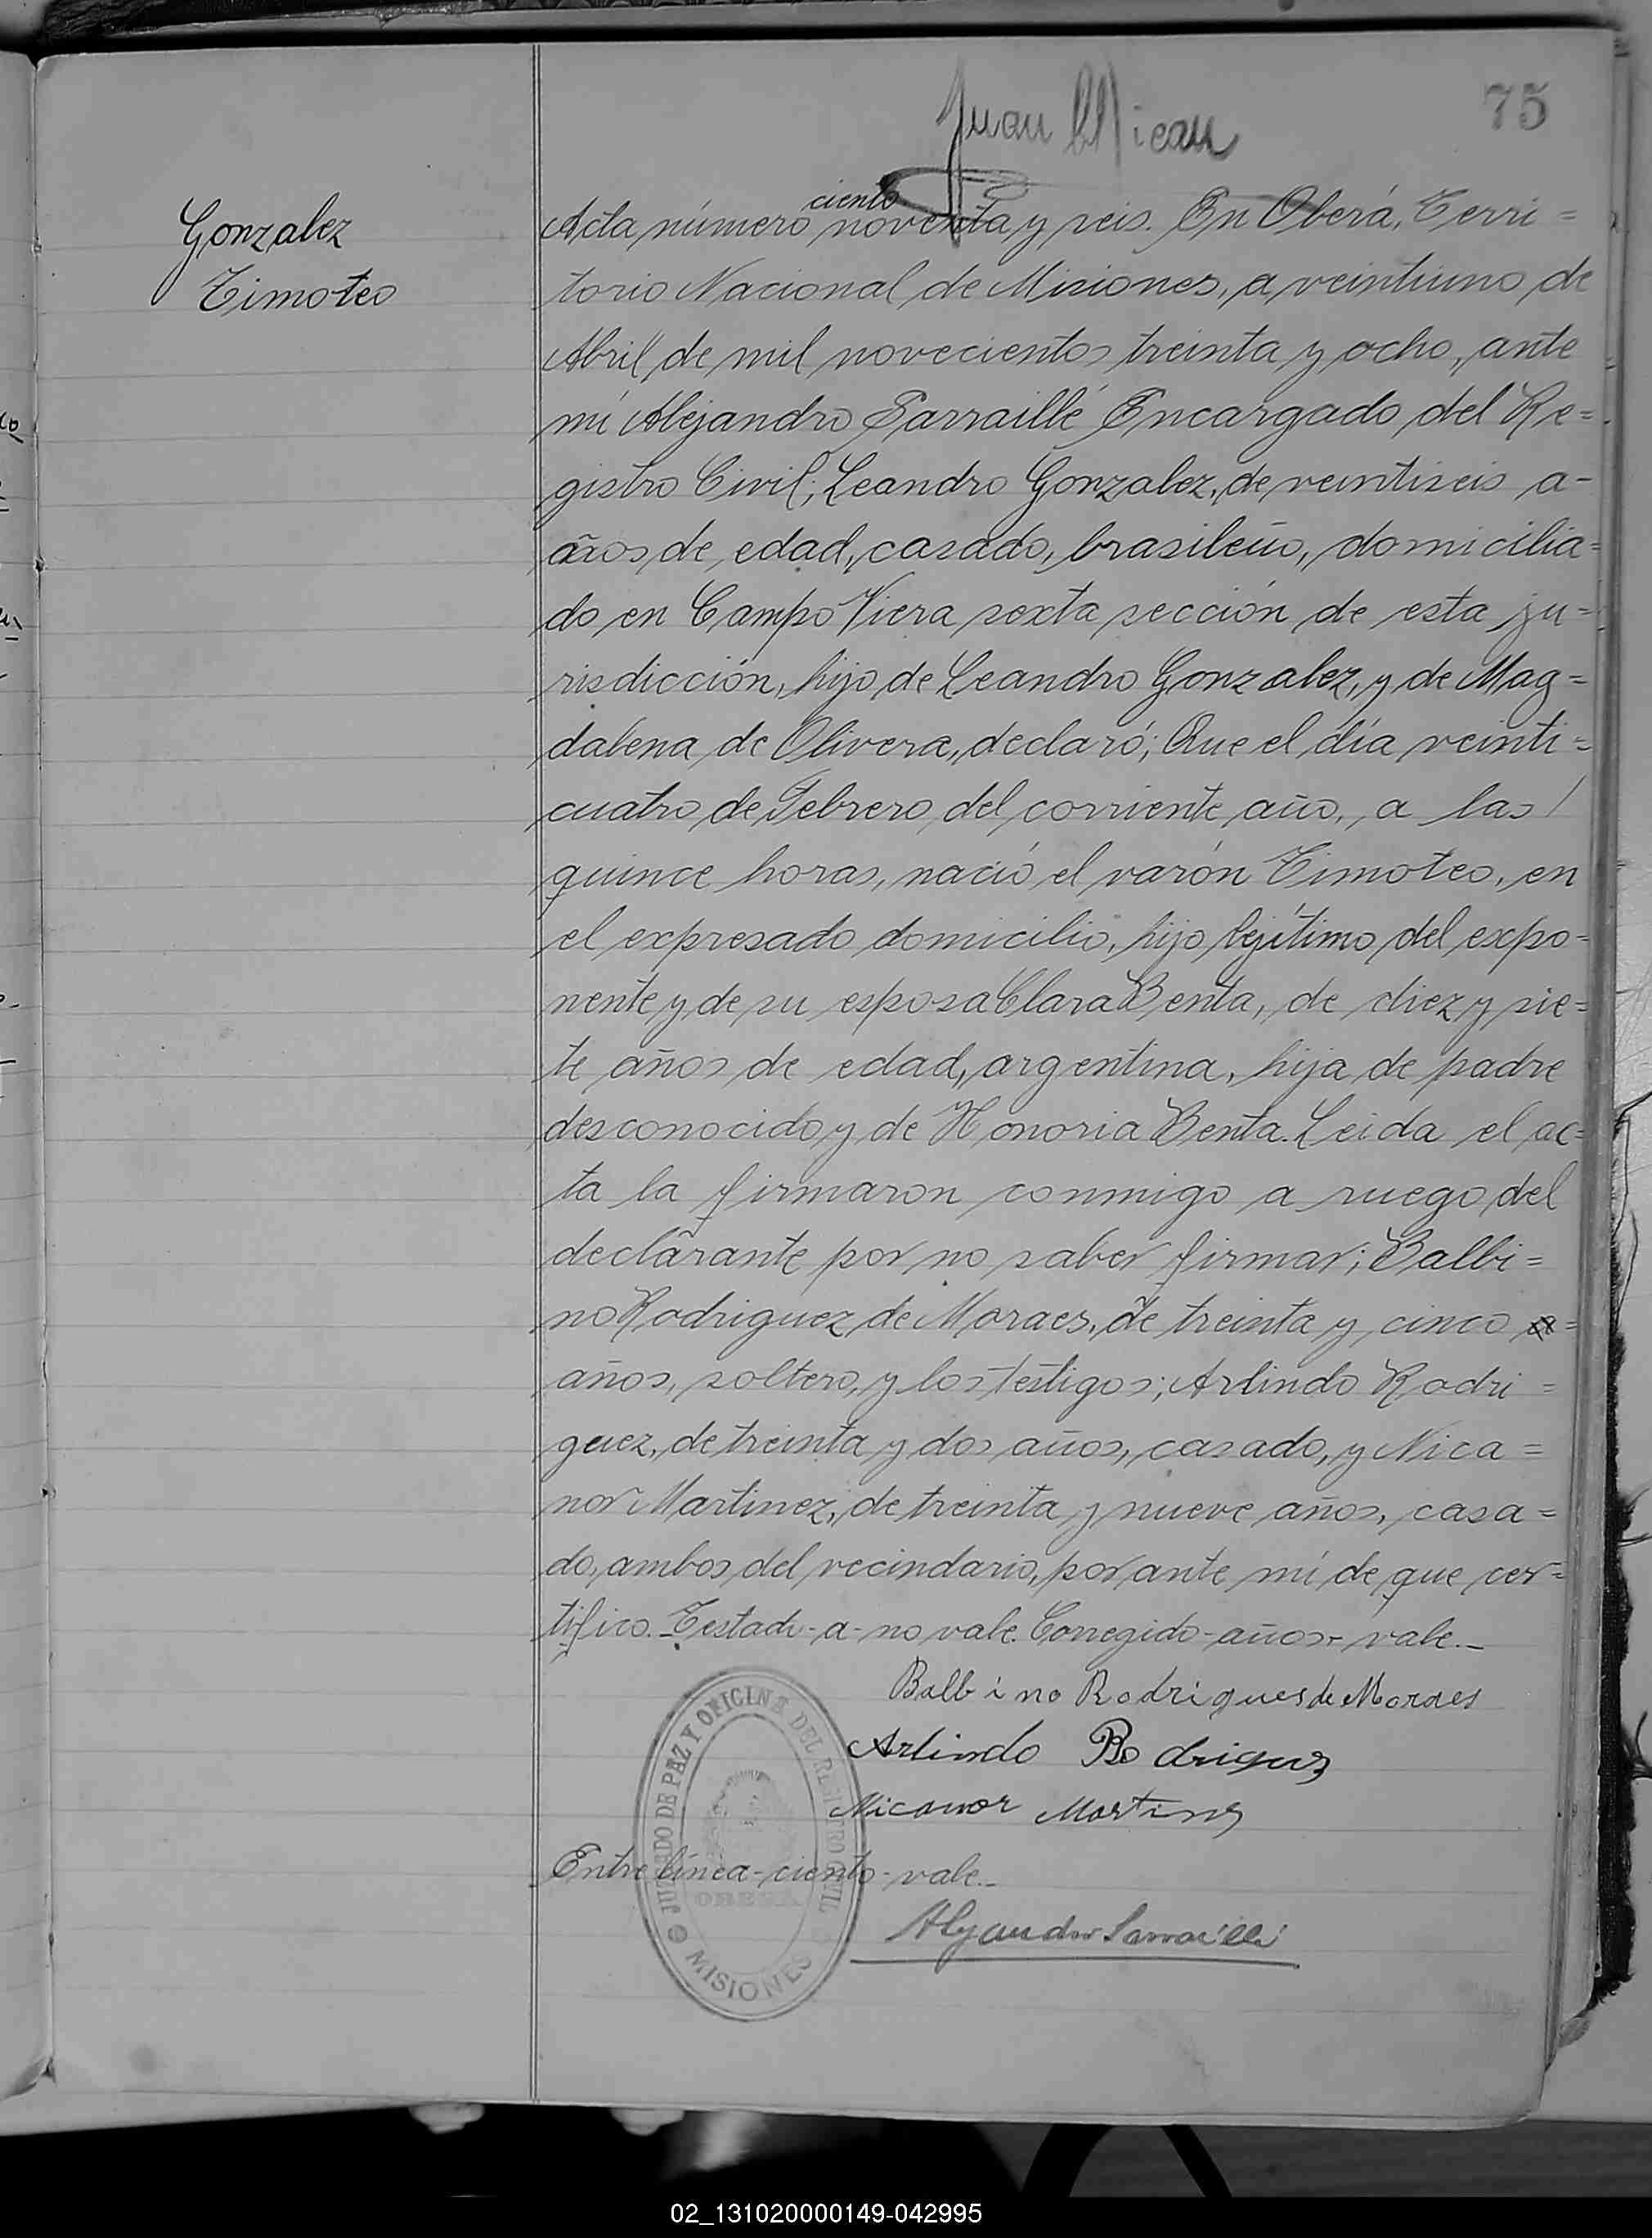 75
Juan
Gonzalez
Timoteo
ciento
Acta número noventa y seis. En Oberá, Terri=
torio Nacional de Misiones, a veintiuno de
Abril de mil novecientos treinta y ocho, ante
mí Alejandro Sarraillé Encargado del Re=
gistro Civil; Leandro Gonzalez, de veintiseis a-
años de edad, casado, brasileño, domicilia=
do en Campo Viera sexta sección de esta ju=
risdicción, hijo de Leandro Gonzalez, y de Mag=
dalena de Olivera, declaró; Que el día veinti=
cuatro de Febrero del corriente año, a las /
quince horas, nació el varón Timoteo, en
el expresado domicilio, hijo lejítimo del expo=
nente y de su esposa Clara Benta, de diez y sie=
te años de edad, argentina, hija de padre
desconocido y de Honoria Benta. Leida el ac=
ta la firmaron conmigo a ruego del
declarante por no saber firmar; Balbi=
no Rodriguez de Moraes, de treinta y cinco a=
años, soltero, y los testigos; Arlindo Rodri=
guez, de treinta y dos años, casado, y Nica=
nor Martinez, de treinta y nueve años, casa=
do, ambos del vecindario, por ante mí de que cer=
tifico. Testado-a-no vale. Corregido-años-vale._
Balbino Rodrigues de Moraes
Arlindo Rodriguez
Nicanor Martinez
Entre línea-ciento-vale._
Alejandro Sarraillé
JUZGADO DE PAZ Y OFICINA DEL REGISTRO CIVIL
OBERA
MISIONES
02_131020000149-042995